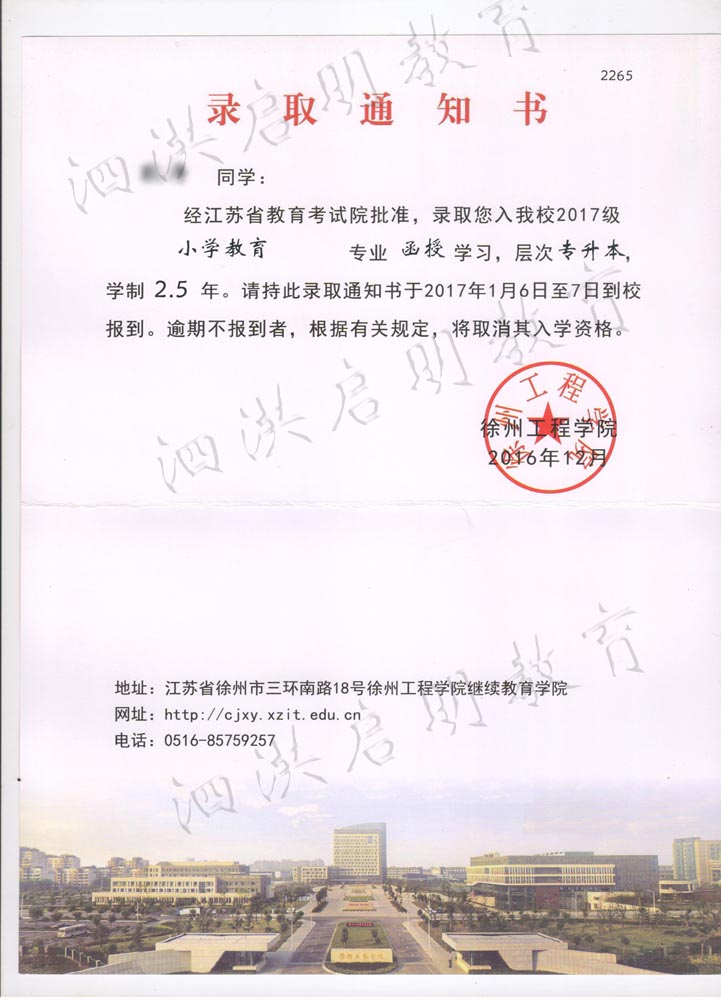 2265
录取通知书
同学：
经江苏省教育考试院批准，录取您入我校2017级
小学教育 专业 函授 学习，层次专升本，
学制 2.5 年。请持此录取通知书于2017年1月6日至7日到校
报到。逾期不报到者，根据有关规定，将取消其入学资格。
徐州工程学院
徐州工程学院
2016年12月
地址：江苏省徐州市三环南路18号徐州工程学院继续教育学院
网址：http://cjxy.xzit.edu.cn
电话：0516-85759257
徐州工程学院
泗洪启明教育
泗洪启明教育
泗洪启明教育